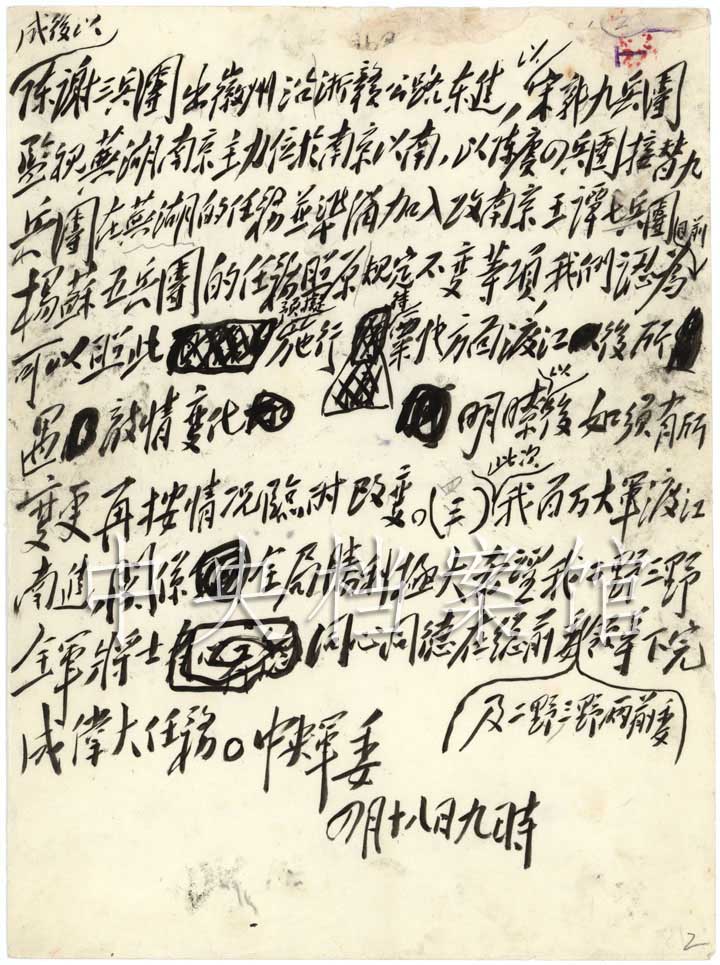 成後以
陳謝三兵團出徽州沿浙贛公路東進,以宋郭九兵團
監視蕪湖南京主力位於南京以南,以陳賡四兵團接替九
兵團在蕪湖的任務並準備加入攻南京王譚七兵團
楊蘇五兵團的任務照原規定不變等項,我們認為目前
可以照此預擬施行,待渡江後所
遇敵情變化明瞭以後如須有所
變更再按情況臨時改變。(三)此次我百萬大軍渡江
南進,關係全局勝利極大,希望我二野三野
全軍將士同心同德在總前委及二野三野兩前委領導下完
成偉大任務。中央軍委
四月十八日九時
中央档案馆
2